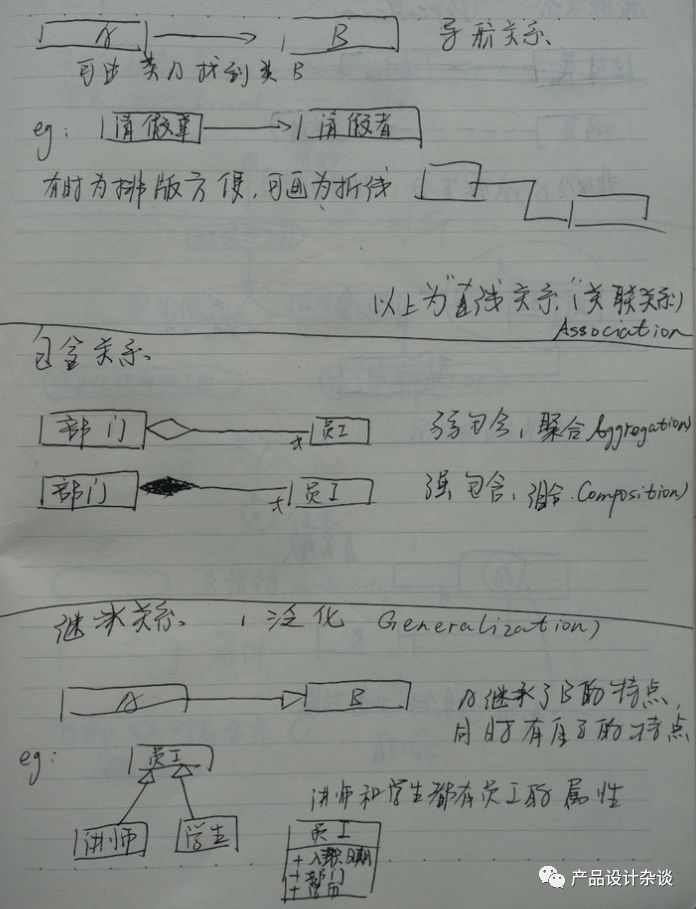 A B 导航关系
可由类A找到类B
eg: 请假单 请假者
有时为排版方便,可画为折线
以上为"直线关系"(关联关系)
Association
包含关系
部门 * 员工 弱包含,聚合 Aggregation)
部门 * 员工 强包含,组合.Composition)
继承关系 (泛化 Generalization)
A B A继承了B的特点,
同时有自己的特点
eg: 员工
讲师和学生都有员工的属性
讲师 学生
员工
+入职日期
+部门
+学历
产品设计杂谈